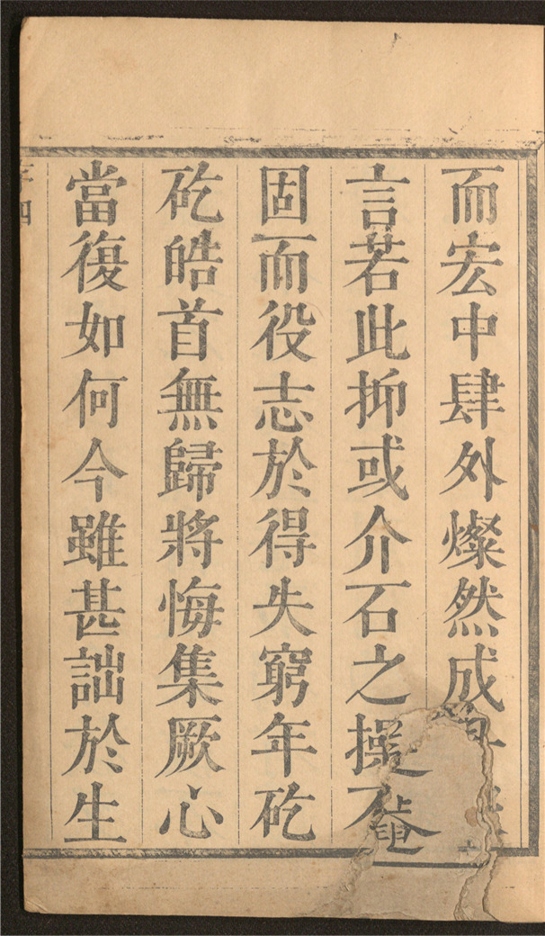 而宏中肆外燦然成
言若此抑或介石之操不
固而役志於得失窮年矻
矻皓首無歸將悔集厥心
當復如何今雖甚詘於生
四